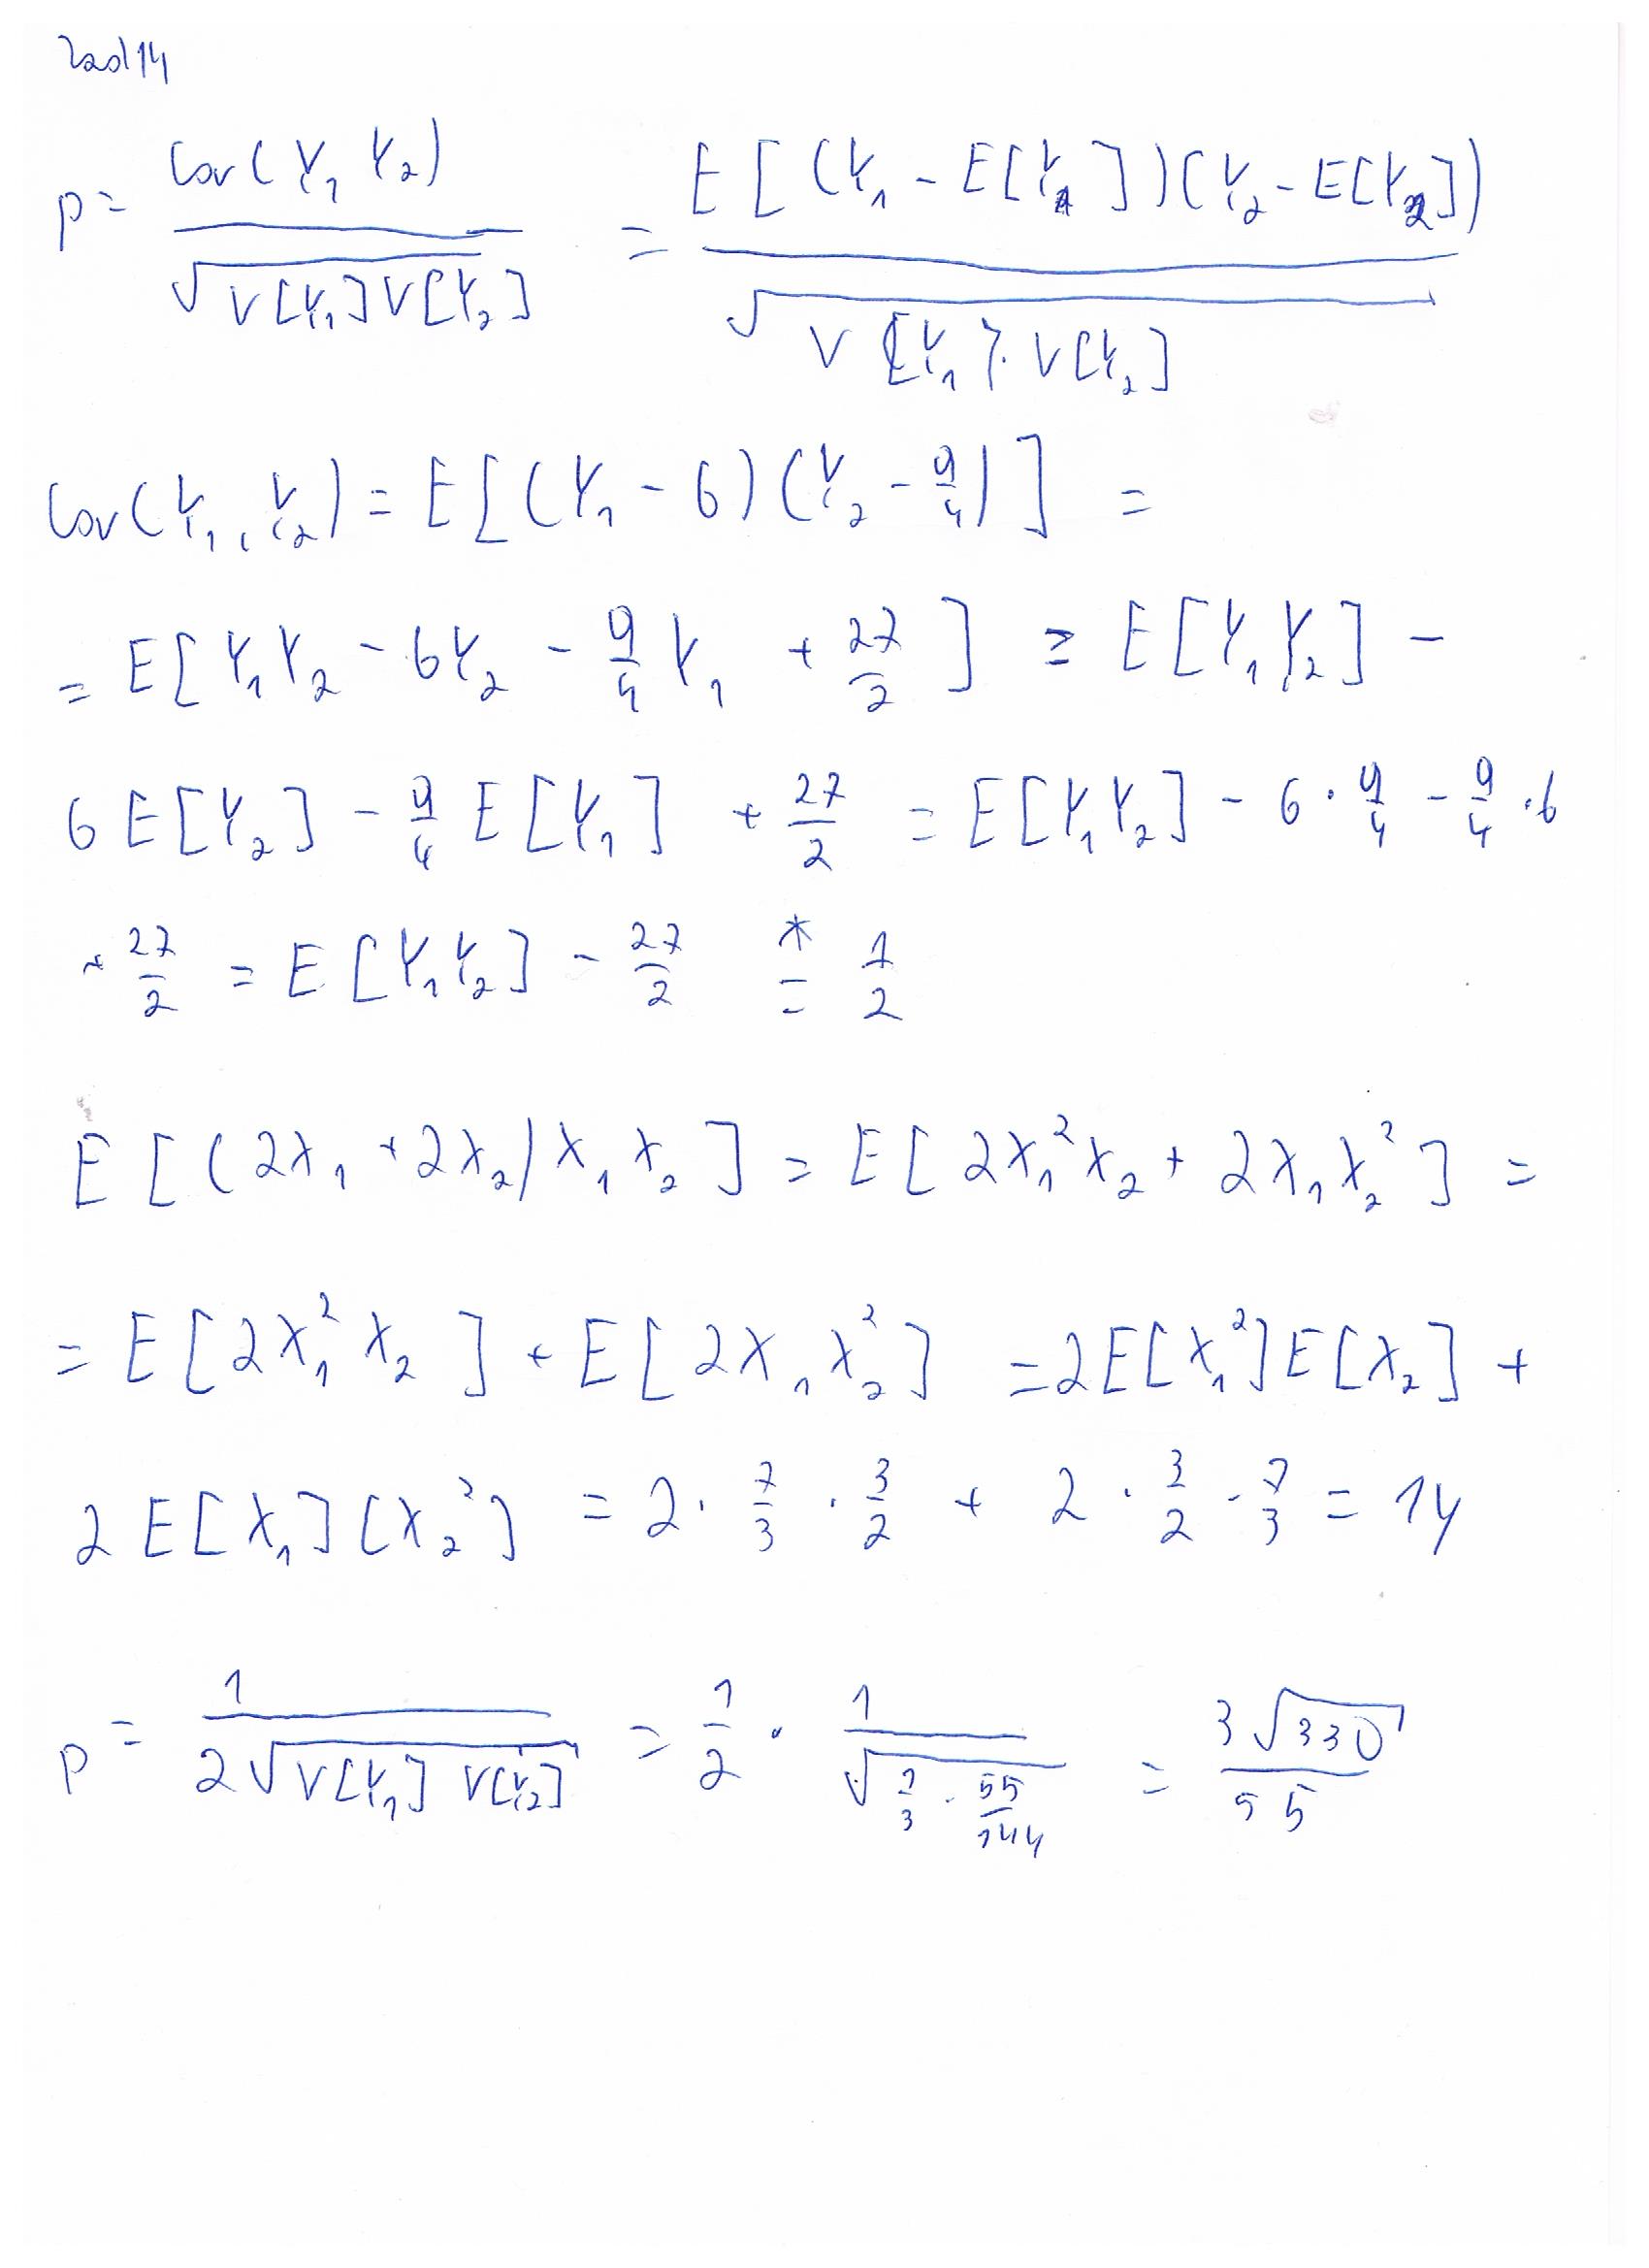 Zad 14
p = Cov(Y₁ Y₂) / √(V[Y₁] V[Y₂]) = E[(Y₁ - E[Y₁])(Y₂ - E[Y₂]) / √(V[Y₁] · V[Y₂])
Cov(Y₁, Y₂) = E[(Y₁ - 6)(Y₂ - 9/4)] =
= E[Y₁Y₂ - 6Y₂ - 9/4 Y₁ + 27/2] = E[Y₁Y₂] -
6E[Y₂] - 9/4 E[Y₁] + 27/2 = E[Y₁Y₂] - 6 · 9/4 - 9/4 · 6
+ 27/2 = E[Y₁Y₂] - 27/2 *= 1/2
E[(2X₁ + 2X₂)X₁X₂] = E[2X₁²X₂ + 2X₁X₂²] =
= E[2X₁²X₂] + E[2X₁X₂²] = 2E[X₁²]E[X₂] +
2E[X₁][X₂²] = 2 · 7/3 · 3/2 + 2 · 3/2 · 7/3 = 14
p = 1 / 2√(V[Y₁] V[Y₂]) = 1/2 · 1 / √(2/3 · 55/144) = 3√330 / 55